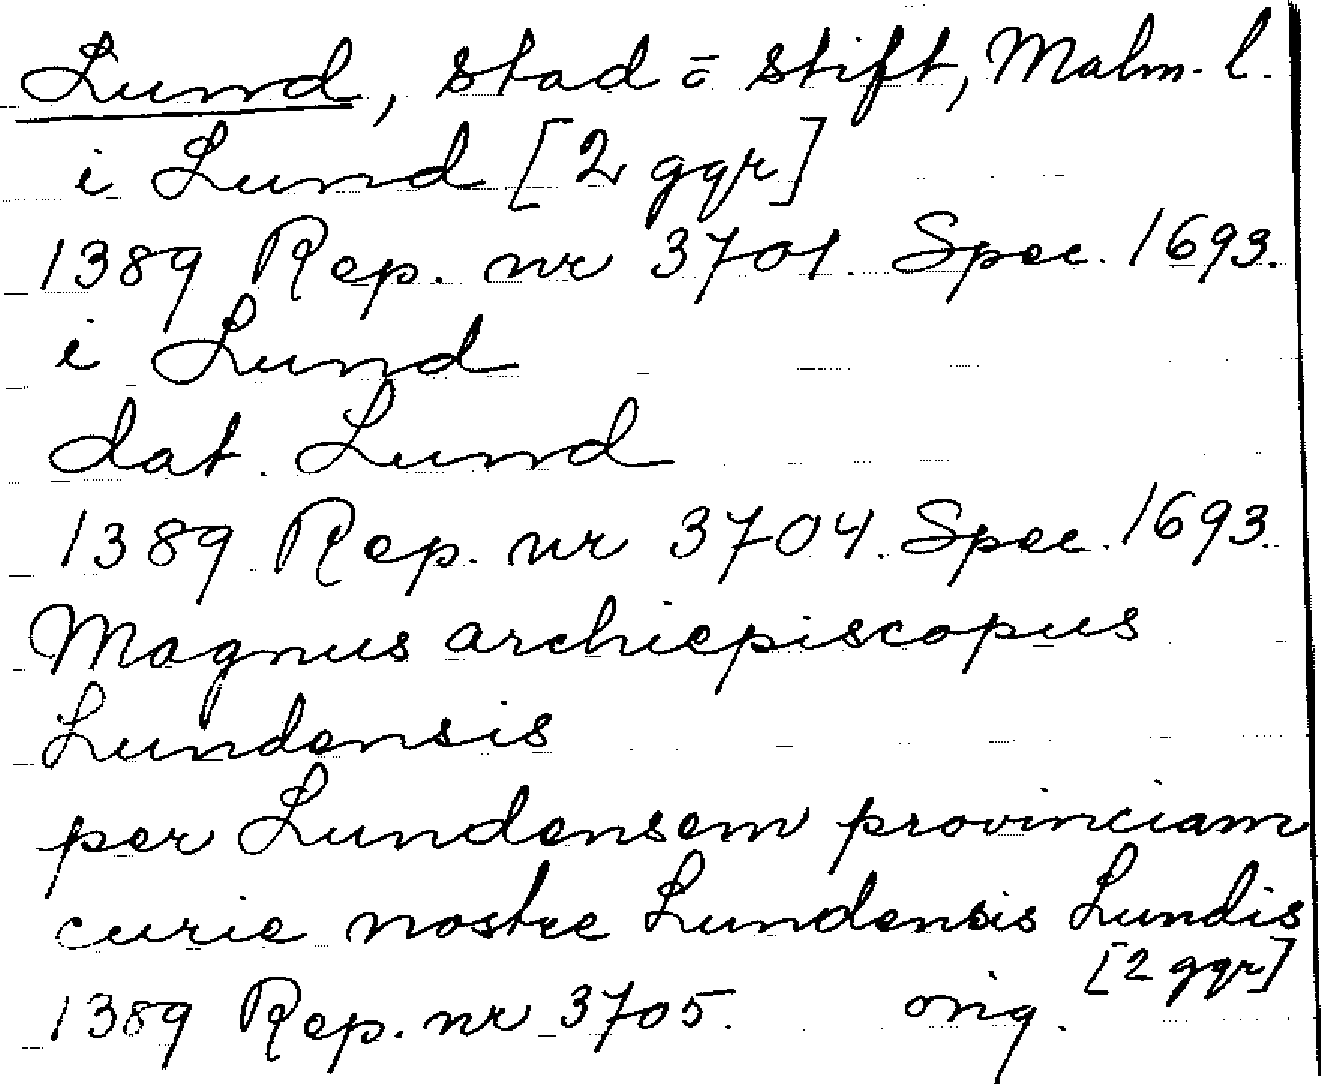 Lund, stad o stift, Malm. l.
i Lund [2 ggr]
1389 Rep. nr 3701. Spec. 1693.
i Lund
dat. Lund
1389 Rep. nr 3704. Spec. 1693.
Magnus archiepiscopus
Lundensis
per Lundensem provinciam
curie nostre Lundensis Lundis
[2 ggr]
1389 Rep. nr 3705. orig.